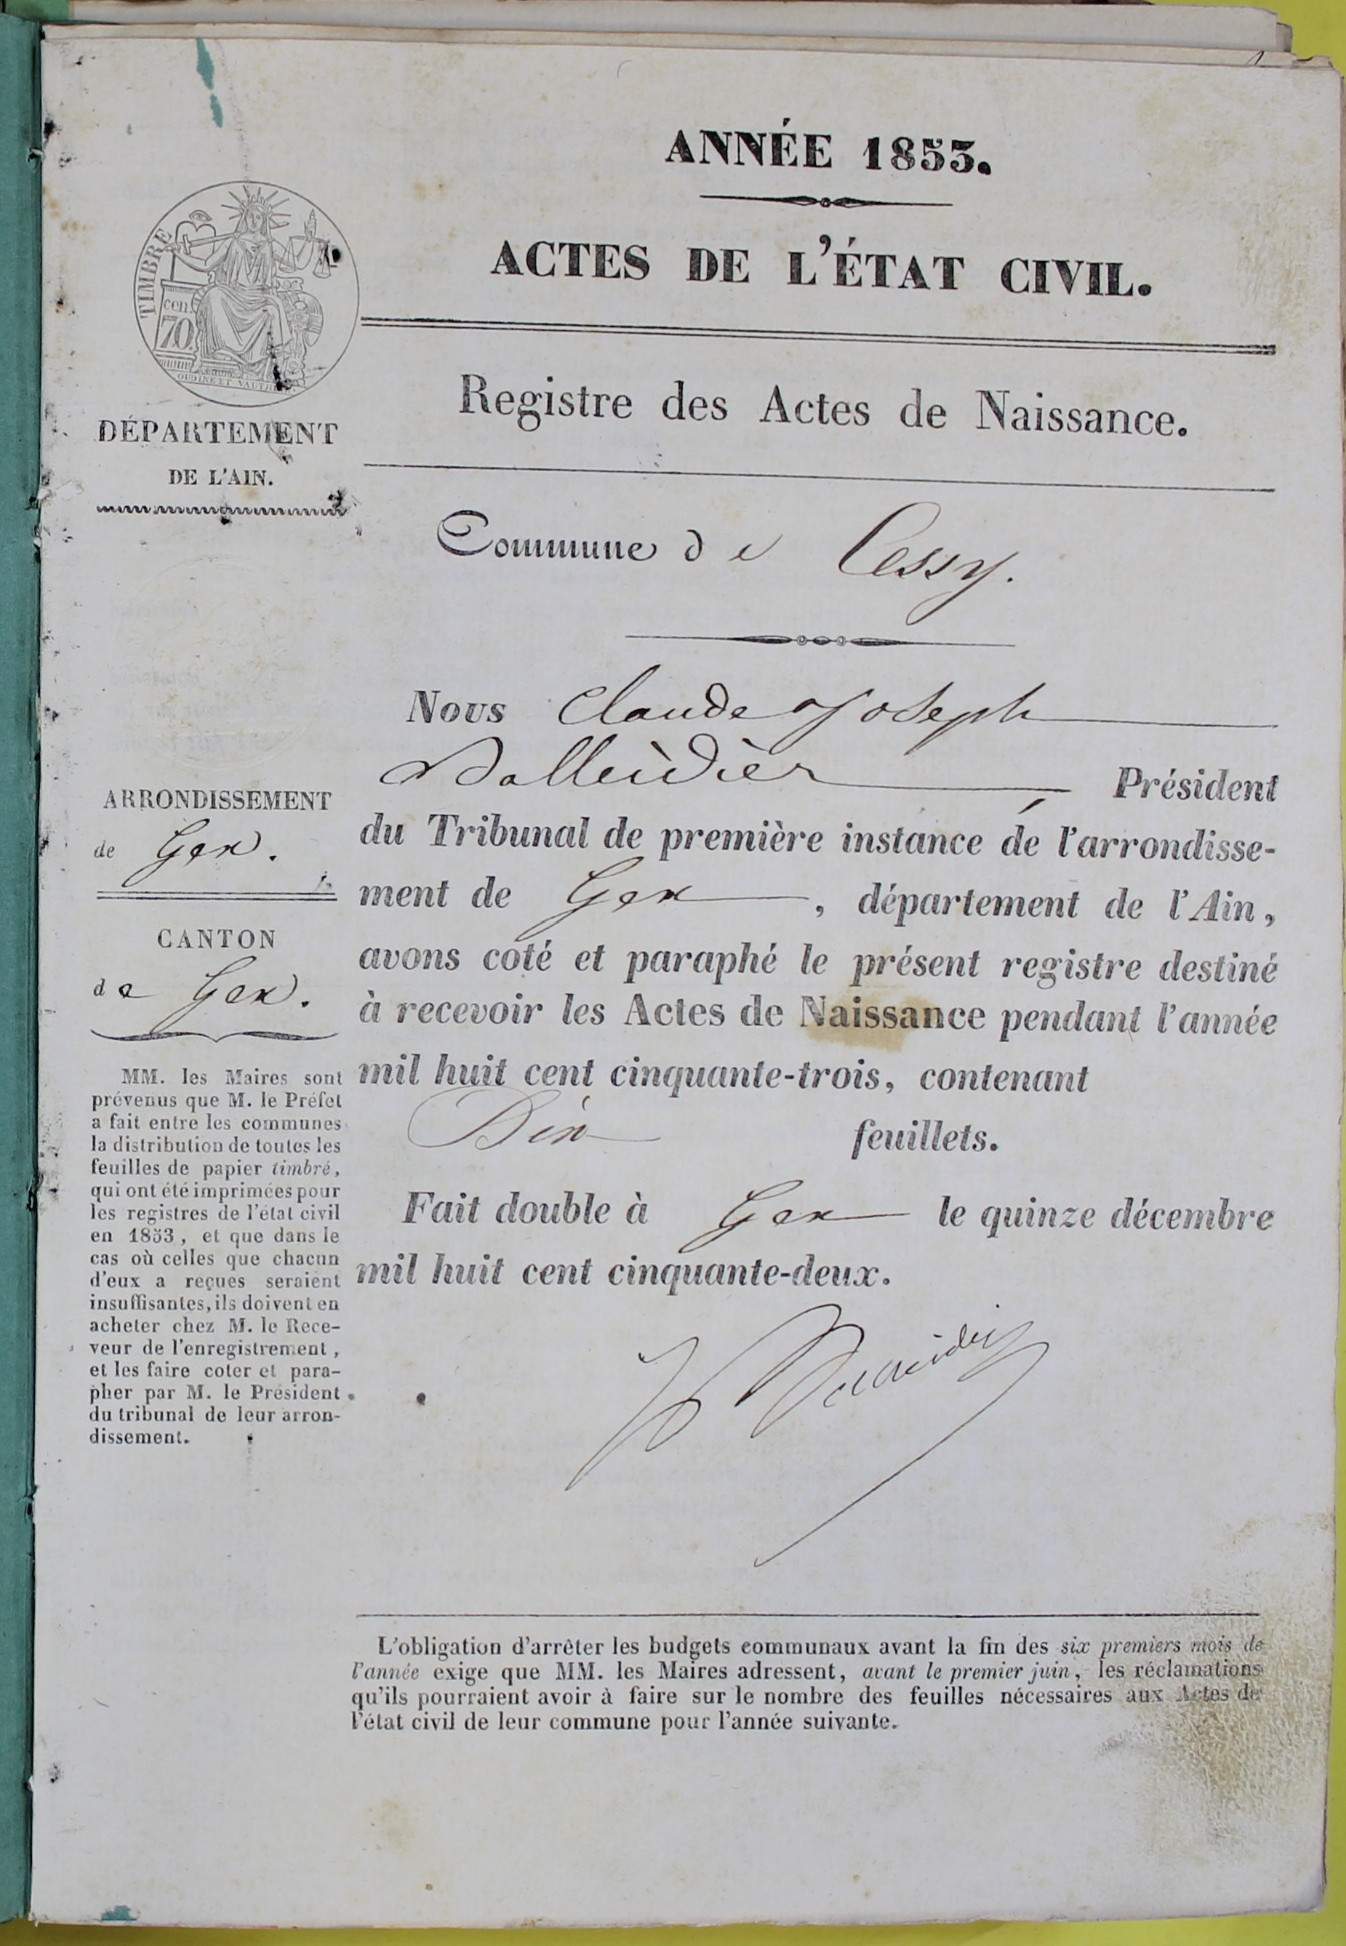 ANNÉE 1853.
ACTES DE L'ÉTAT CIVIL.
TIMBRE
cen
70
OUDINE ET
DÉPARTEMENT
DE L'AIN.
Registre des Actes de Naissance.
Commune de Cessy.
Nous Claude Joseph
Président
du Tribunal de première instance de l'arrondisse-
ment de Gex, département de l'Ain,
avons coté et paraphé le présent registre destiné
à recevoir les Actes de Naissance pendant l'année
mil huit cent cinquante-trois, contenant
Dix feuillets.
Fait double à Gex le quinze décembre
mil huit cent cinquante-deux.
ARRONDISSEMENT
de Gex.
CANTON
de Gex.
MM. les Maires sont
prévenus que M. le Préfet
a fait entre les communes
la distribution de toutes les
feuilles de papier timbré,
qui ont été imprimées pour
les registres de l'état civil
en 1853, et que dans le
cas où celles que chacun
d'eux a reçues seraient
insuffisantes, ils doivent en
acheter chez M. le Rece-
veur de l'enregistrement,
et les faire coter et para-
pher par M. le Président
du tribunal de leur arron-
dissement.
L'obligation d'arrêter les budgets communaux avant la fin des six premiers mois de
l'année exige que MM. les Maires adressent, avant le premier juin, les réclamations
qu'ils pourraient avoir à faire sur le nombre des feuilles nécessaires aux Actes de
l'état civil de leur commune pour l'année suivante.